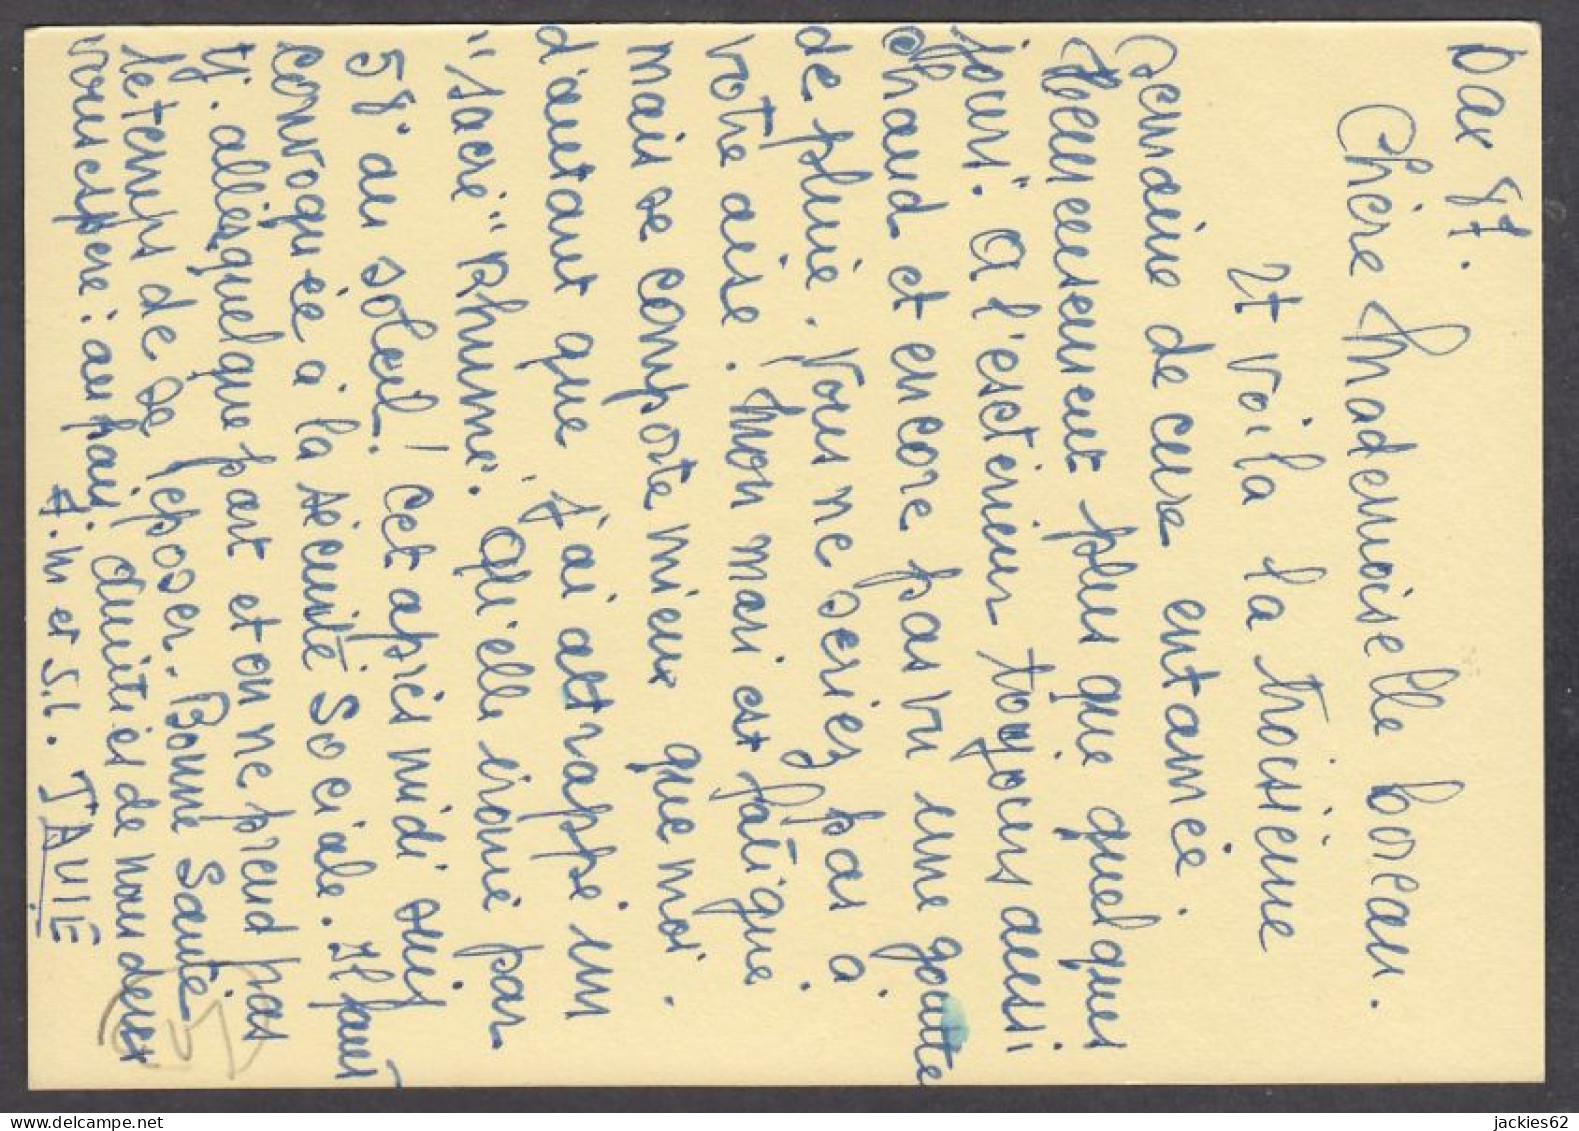 Dax 87.
Chère Mademoiselle Boreau.
Et voila la troisième
semaine de cure entamée.
Heureusement plus que quelques
jours. A l'exterieur toujours aussi
chaud et encore pas vu une goutte
de pluie. Vous ne seriez pas à
votre aise. Mon mari est fatigué
mais se comporte mieux que moi.
d'autant que j'ai attrappé un
"sacré" Rhume. Qu'elle crové par
58° au soleil! Cet après midi suis
convoquée à la sécurité Sociale. Il faut
y allier quelque part et on ne prend pas
le temps de se reposer. Bonne Santé
vous espère : au pair. Amitiés de nous deux
A.M et S.L. TAUIE
www.delcampe.net
jackies62